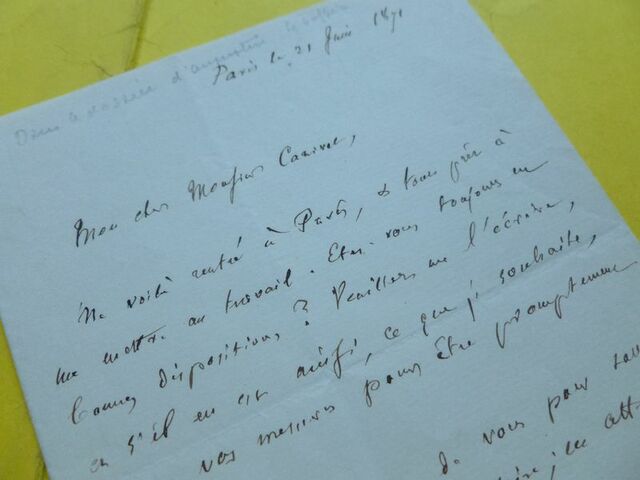 Dans le dossier d'augustin
Paris le 21 Juin 1871
Mon cher Monsieur
Me voilà rentré à Paris, & tout prêt à
me mettre au travail. Etes-vous toujours en
bonnes dispositions? Veuillez me l'écrire,
en s'il en est ainsi, ce que je souhaite,
vos mesures pour être promptement
de vous pour